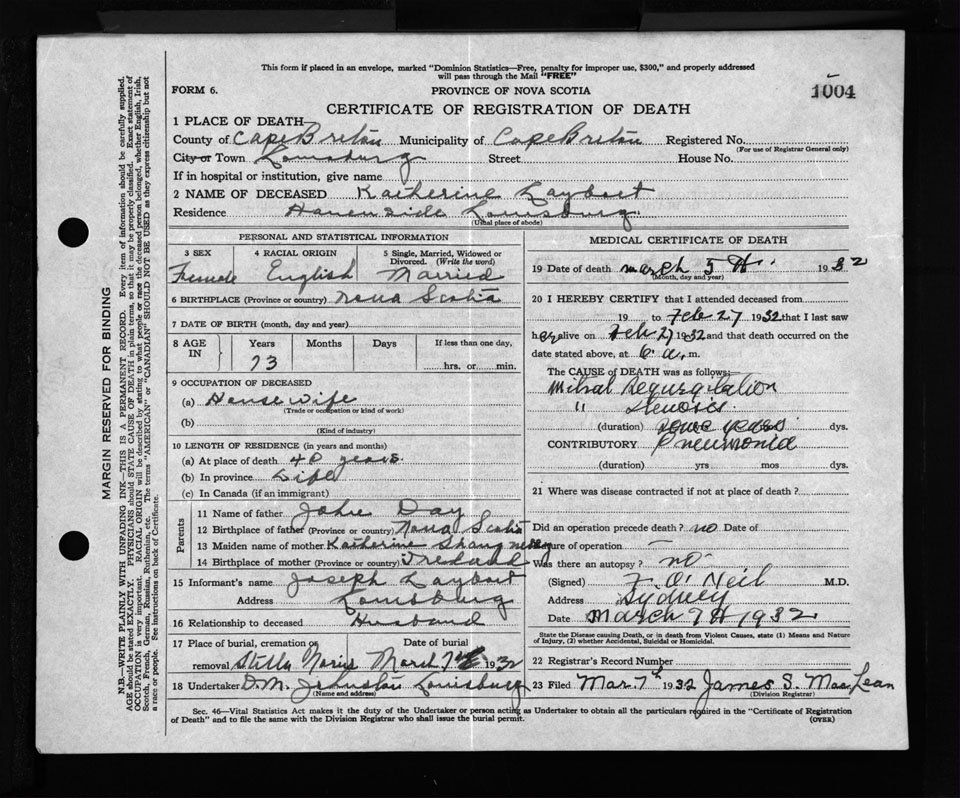 This form if placed in an envelope, marked "Dominion Statistics—Free, penalty for improper use, $300," and properly addressed
will pass through the Mail "FREE"
FORM 6.
PROVINCE OF NOVA SCOTIA
1004
CERTIFICATE OF REGISTRATION OF DEATH
1 PLACE OF DEATH
County of Cape Breton Municipality of Cape Breton Registered No.
(For use of Registrar General only)
City or Town Louisburg Street House No.
If in hospital or institution, give name
2 NAME OF DECEASED Katherine
Residence Louisburg
(Usual place of abode)
PERSONAL AND STATISTICAL INFORMATION
3 SEX 4 RACIAL ORIGIN 5 Single, Married, Widowed or Divorced. (Write the word)
Female English Married
6 BIRTHPLACE (Province or country) Nova Scotia
7 DATE OF BIRTH (month, day and year)
8 AGE IN Years Months Days If less than one day,
73 hrs. or min.
9 OCCUPATION OF DECEASED
(a) Housewife
(Trade or occupation or kind of work)
(b)
(Kind of industry)
10 LENGTH OF RESIDENCE (in years and months)
(a) At place of death 40 years
(b) In province Life
(c) In Canada (if an immigrant)
Parents
11 Name of father John Day
12 Birthplace of father (Province or country) Nova Scotia
13 Maiden name of mother Katherine
14 Birthplace of mother (Province or country) Ireland
15 Informant's name Joseph
Address Louisburg
16 Relationship to deceased Husband
17 Place of burial, cremation or Date of burial
removal Stella Maris March 7th 1932
18 Undertaker D.M. Johnston Louisburg
(Name and address)
MEDICAL CERTIFICATE OF DEATH
19 Date of death March 5th 1932
(Month, day and year)
20 I HEREBY CERTIFY that I attended deceased from
19 to Feb 27 1932 that I last saw
her alive on Feb 27 1932 and that death occurred on the
date stated above, at 6 a. m.
The CAUSE of DEATH was as follows:
Mitral Regurgitation
" Stenosis
(duration) some years dys.
CONTRIBUTORY Pneumonia
(duration) yrs mos dys.
21 Where was disease contracted if not at place of death?
Did an operation precede death? no Date of
Nature of operation —
Was there an autopsy? no
(Signed) F. O'Neil M.D.
Address Sydney
Date March 7th 1932
State the Disease causing Death, or in death from Violent Causes, state (1) Means and Nature
of Injury, (2) whether Accidental, Suicidal or Homicidal.
22 Registrar's Record Number
23 Filed Mar. 7th 1932 James S. MacLean
(Division Registrar)
Sec. 46—Vital Statistics Act makes it the duty of the Undertaker or person acting as Undertaker to obtain all the particulars required in the "Certificate of Registration
of Death" and to file the same with the Division Registrar who shall issue the burial permit.
(OVER)
MARGIN RESERVED FOR BINDING
N.B.—WRITE PLAINLY WITH UNFADING INK—THIS IS A PERMANENT RECORD. Every item of information should be carefully supplied.
AGE should be stated EXACTLY. PHYSICIANS should STATE CAUSE OF DEATH in plain terms, so that it may be properly classified. Exact statement of
OCCUPATION is very important. RACIAL ORIGIN will be described by stating to what people or race the deceased person belonged, whether English, Irish,
Scotch, French, German, Russian, Ruthenian, etc. The terms "AMERICAN" or "CANADIAN" SHOULD NOT BE USED as they express citizenship but not
a race or people. See instructions on back of Certificate.